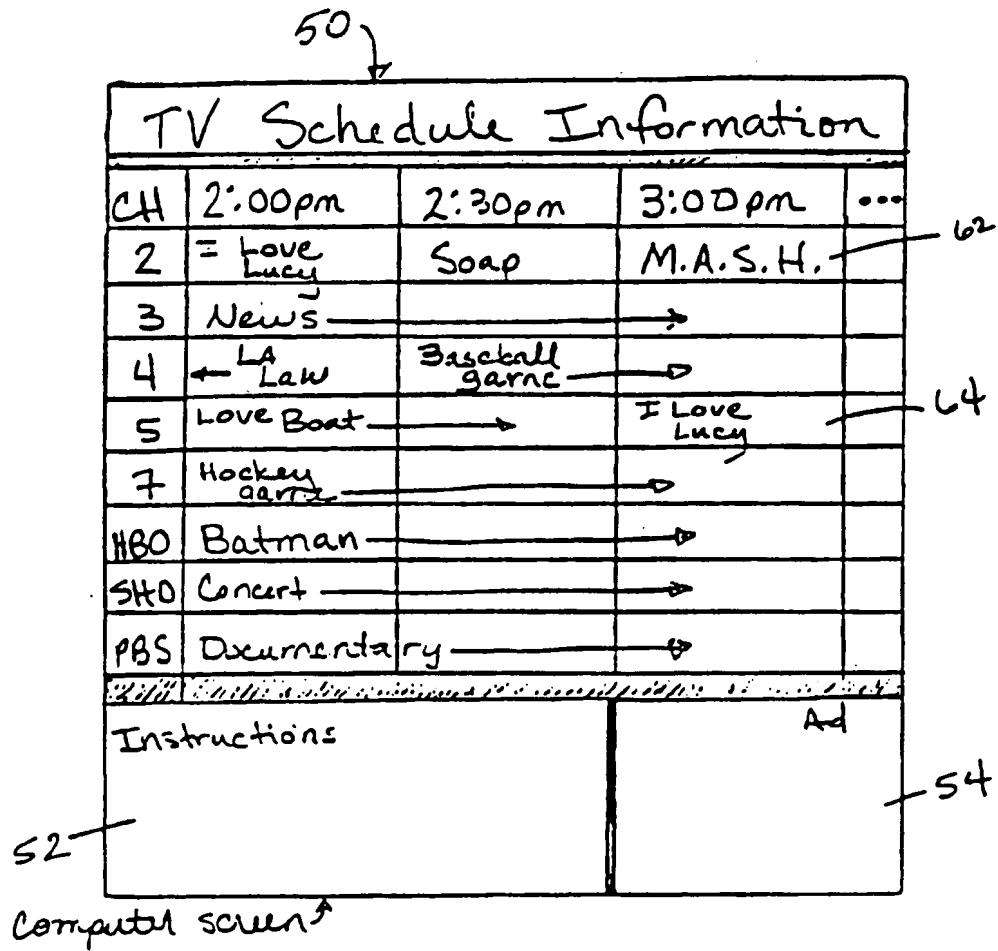 50
TV Schedule Information
CH 2:00pm 2:30pm 3:00pm ...
62
2 I Love Soap M.A.S.H.
Lucy
3 News
4 LA Baseball
Law game
64
5 Love Boat I Love
Lucy
7 Hockey
game
HBO Batman
SHO Concert
PBS Documentary
Instructions Ad
54
52
Computer screen